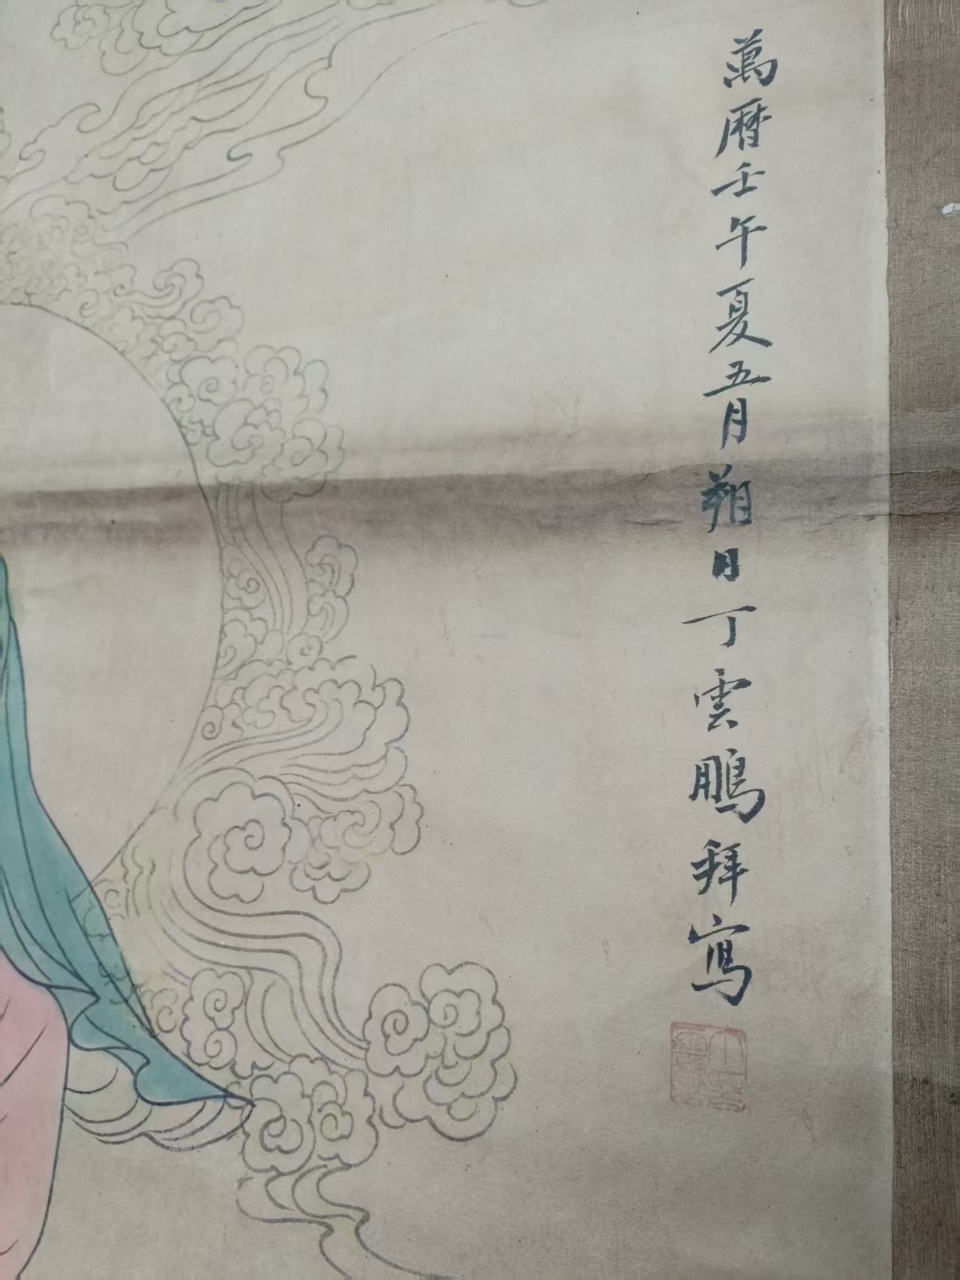 萬曆壬午夏五月朔日丁雲鵬拜寫